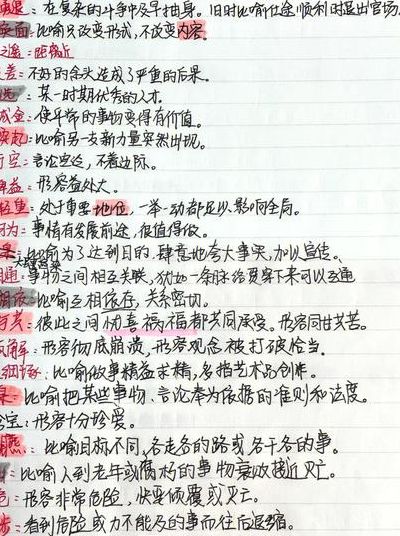 勇退：在复杂的斗争中及早抽身。旧时比喻仕途顺利时退出官场
：比喻只改变形式，不改变内容。
之遥：距离近
差：不好的念头造成了严重的后果。
选：某一时期优秀的人才。
成金：使平常的事物变得有价值。
突起：比喻另一支新力量突然出现。
行空：言论空泛，不着边际。
：形容益处大。
轻重：处于重要地位，一举一动都足以影响全局。
可为：事情有发展前途，很值得做。
：比喻为了达到目的，肆意地夸大事实，加以宣传。
相通：事物之间相互关联，犹如一条脉络贯穿下来可以互通
相依：比喻互相依存，关系密切。
与共：彼此之间忧喜祸福都共同承受。形容同甘共苦。
瓦解：形容彻底崩溃，形容观念被打破恰当。
细琢：比喻做事精益求精，多指艺术品创作。
：比喻把某些事物、言论奉为依据的准则和法度。
：形容十分珍爱。
：比喻目标不同，各走各的路或各干各的事。
：比喻人到老年或腐朽的事物衰败接近灭亡。
：形容非常危险，快要倾覆或灭亡。
步：看到危险或力不能及的事而往后退缩。